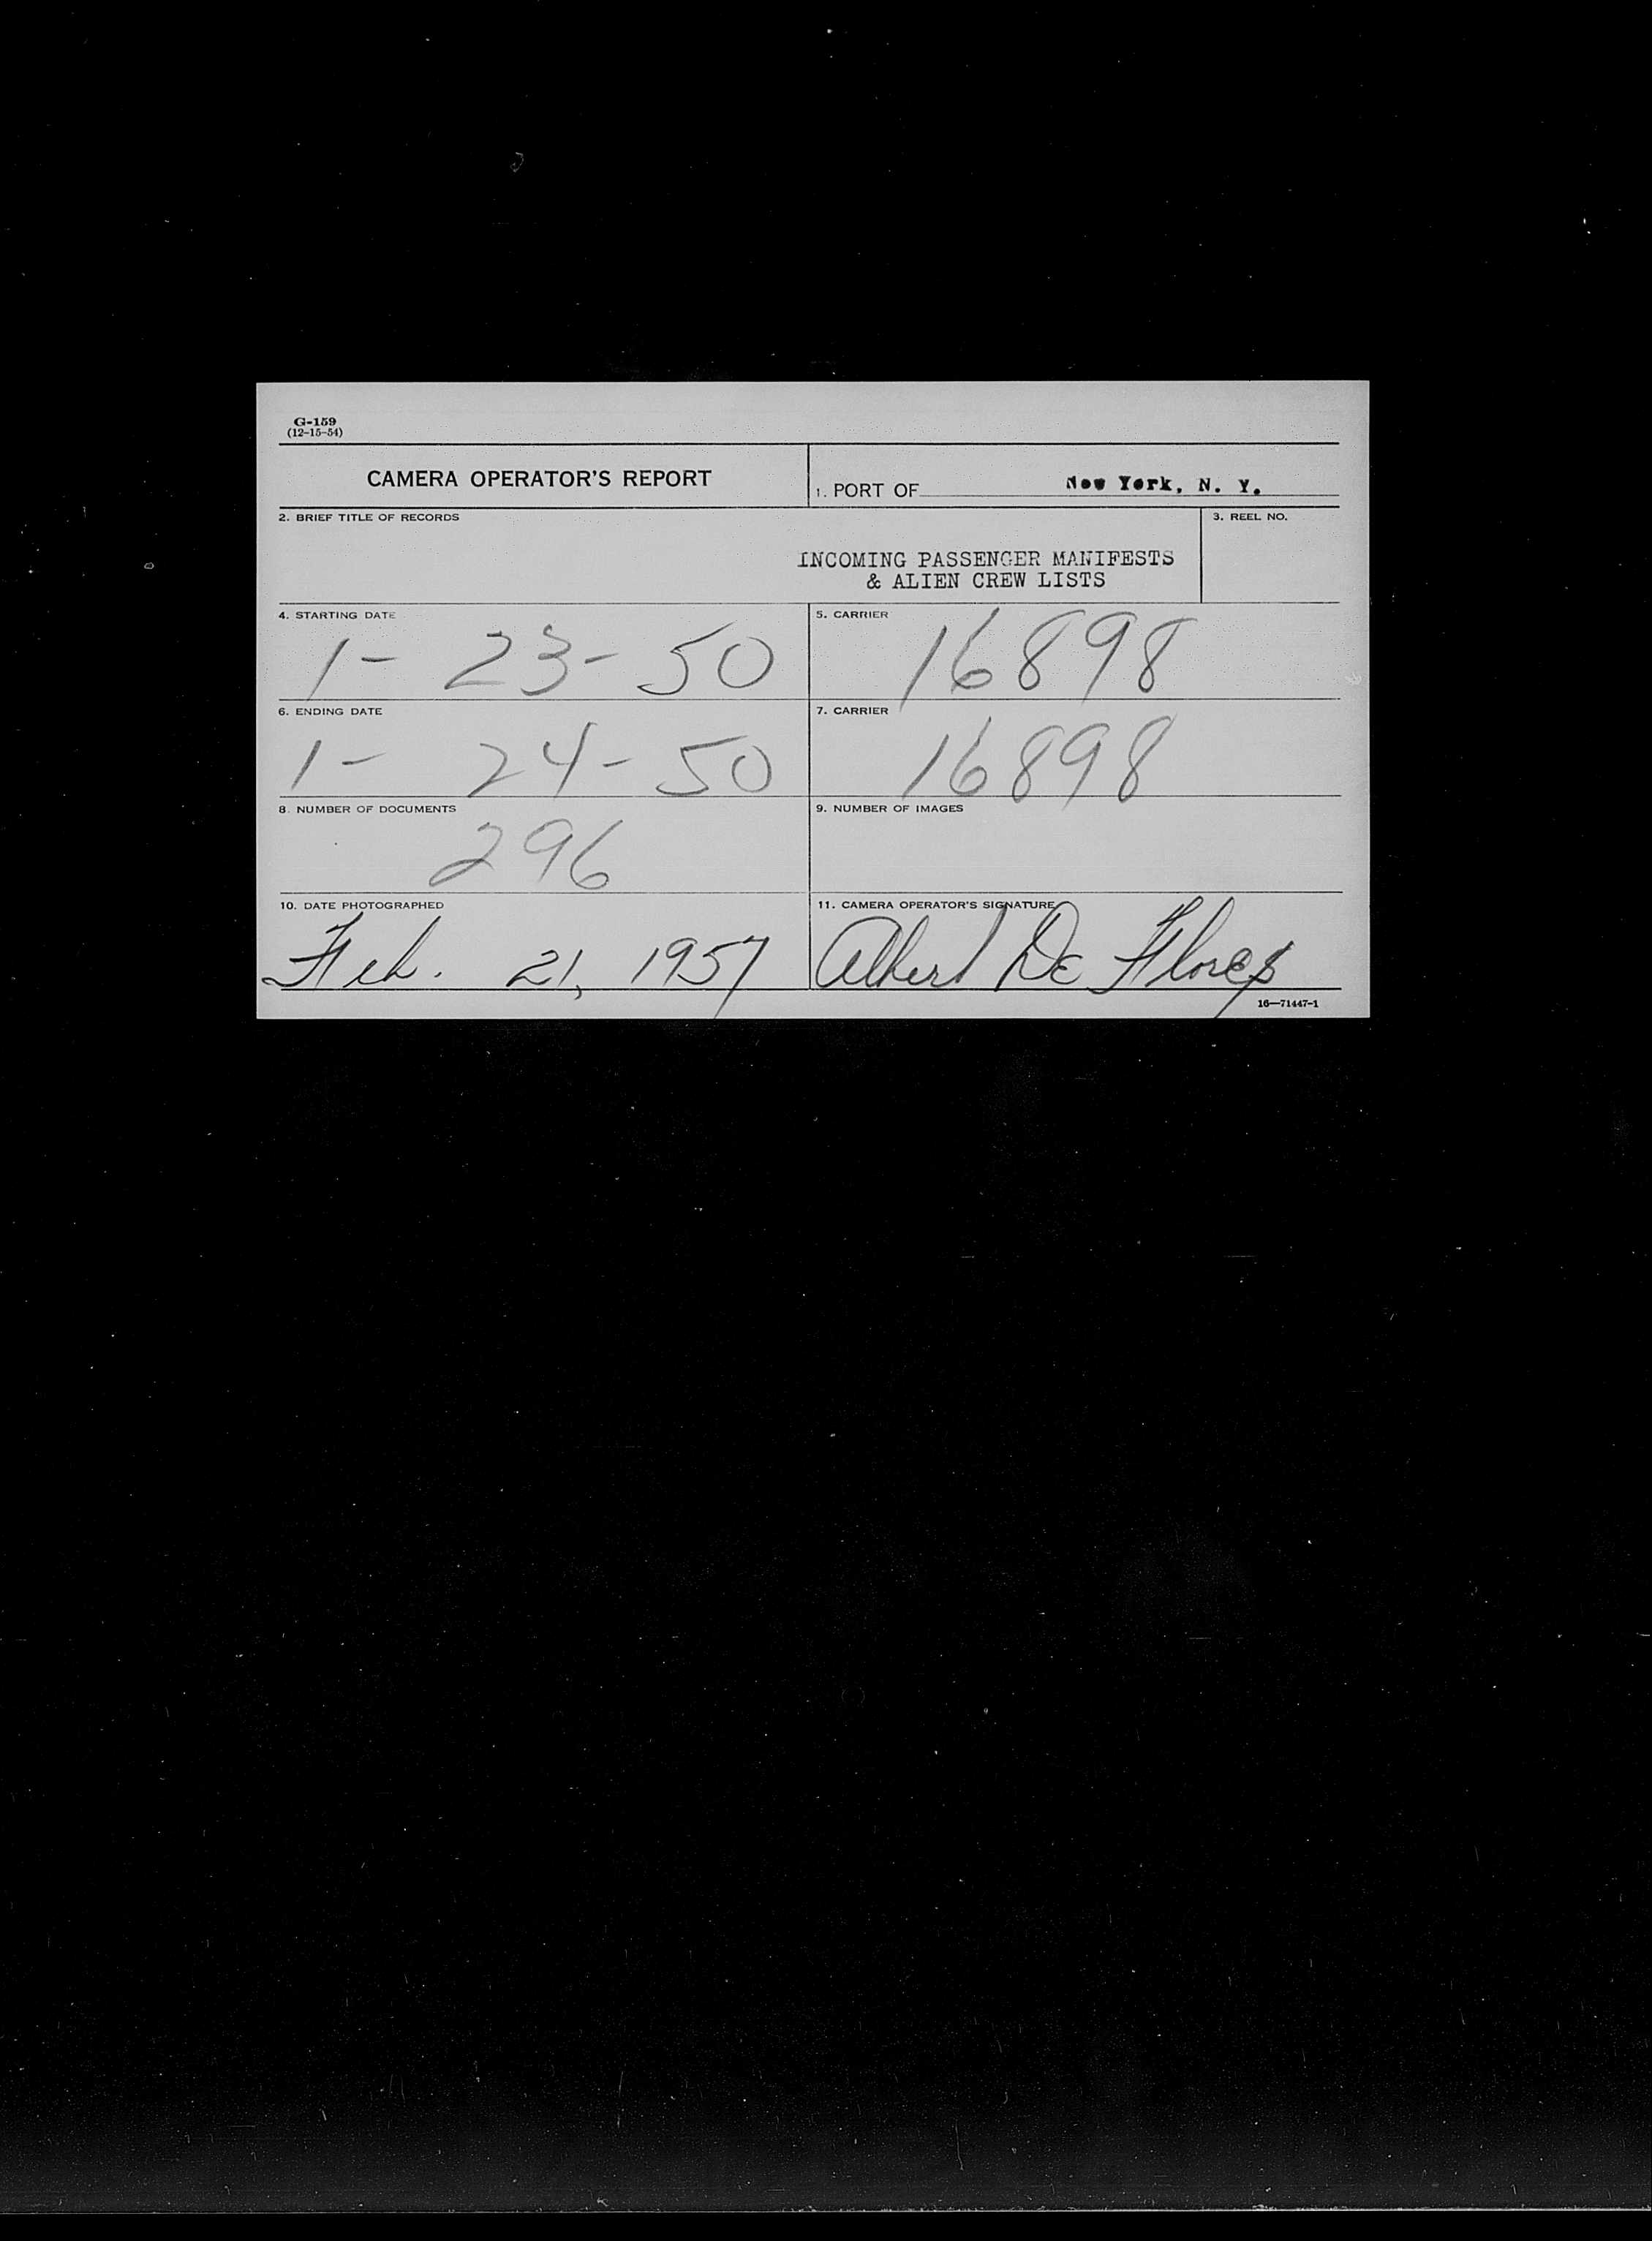 G-159
(12-15-54)
CAMERA OPERATOR'S REPORT
1. PORT OF New York, N. Y.
2. BRIEF TITLE OF RECORDS
3. REEL NO.
INCOMING PASSENGER MANIFESTS
& ALIEN CREW LISTS
4. STARTING DATE
1-23-50
5. CARRIER
16898
6. ENDING DATE
1-24-50
7. CARRIER
16898
8. NUMBER OF DOCUMENTS
296
9. NUMBER OF IMAGES
10. DATE PHOTOGRAPHED
Feb. 21, 1957
11. CAMERA OPERATOR'S SIGNATURE
Albert De Flores
16—71447-1